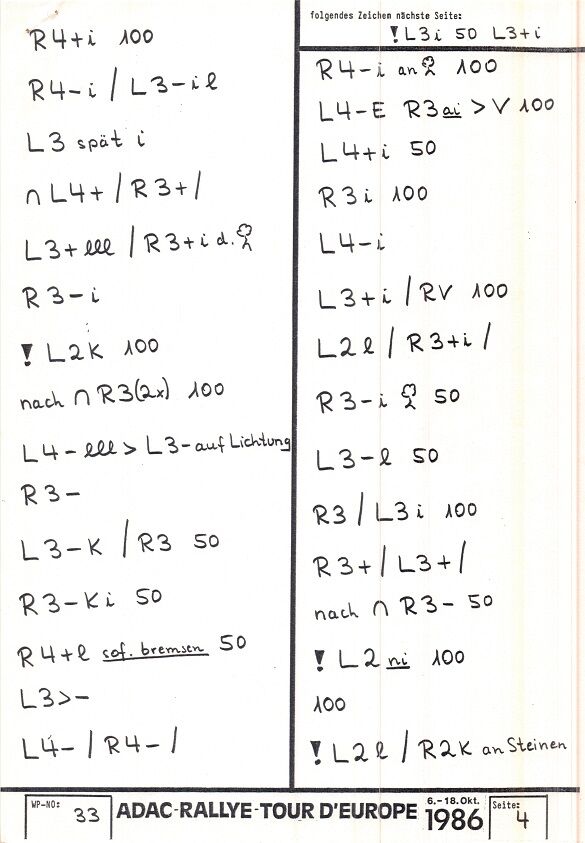 R4+i 100
R4-i / L3-il
L3 spät i
∩ L4+ / R3+ /
L3+ lll / R3+i d.
R3-i
! L2K 100
nach ∩ R3(2x) 100
L4- lll > L3- auf Lichtung
R3-
L3-K / R3 50
R3-Ki 50
R4+l sof. bremsen 50
L3>-
L4- / R4- /
folgendes Zeichen nächste Seite:
! L3i 50 L3+i
R4-i an 100
L4-E R3ai > V 100
L4+i 50
R3i 100
L4-i
L3+i / RV 100
L2l / R3+i /
R3-i 50
L3-l 50
R3 / L3i 100
R3+ / L3+ /
nach ∩ R3- 50
! L2ni 100
100
! L2l / R2K an Steinen
WP-NO: 33
ADAC-RALLYE-TOUR D'EUROPE
6.-18.Okt. 1986
Seite: 4